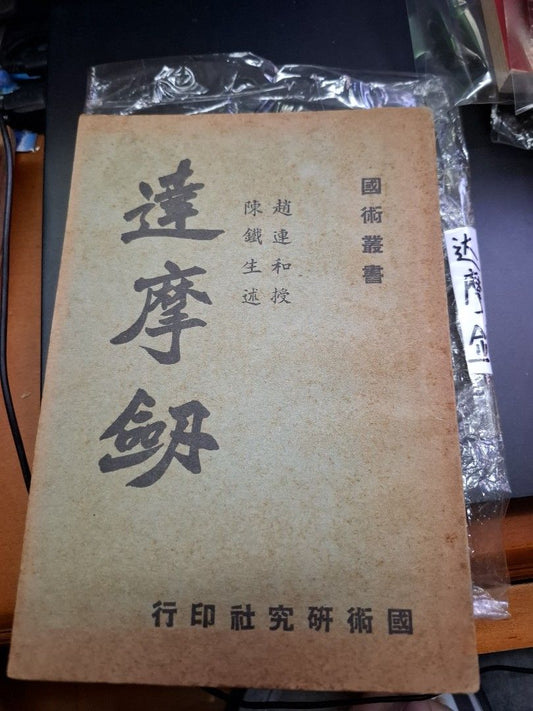 國術叢書
趙連和授
陳鐵生述
達摩劒
國術研究社印行
达摩剑